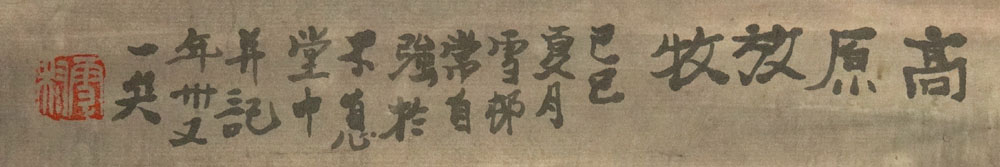 高原放牧
己巳
夏月
雪邨
常自
強於
不息
堂中
并記
年卌又
一矣